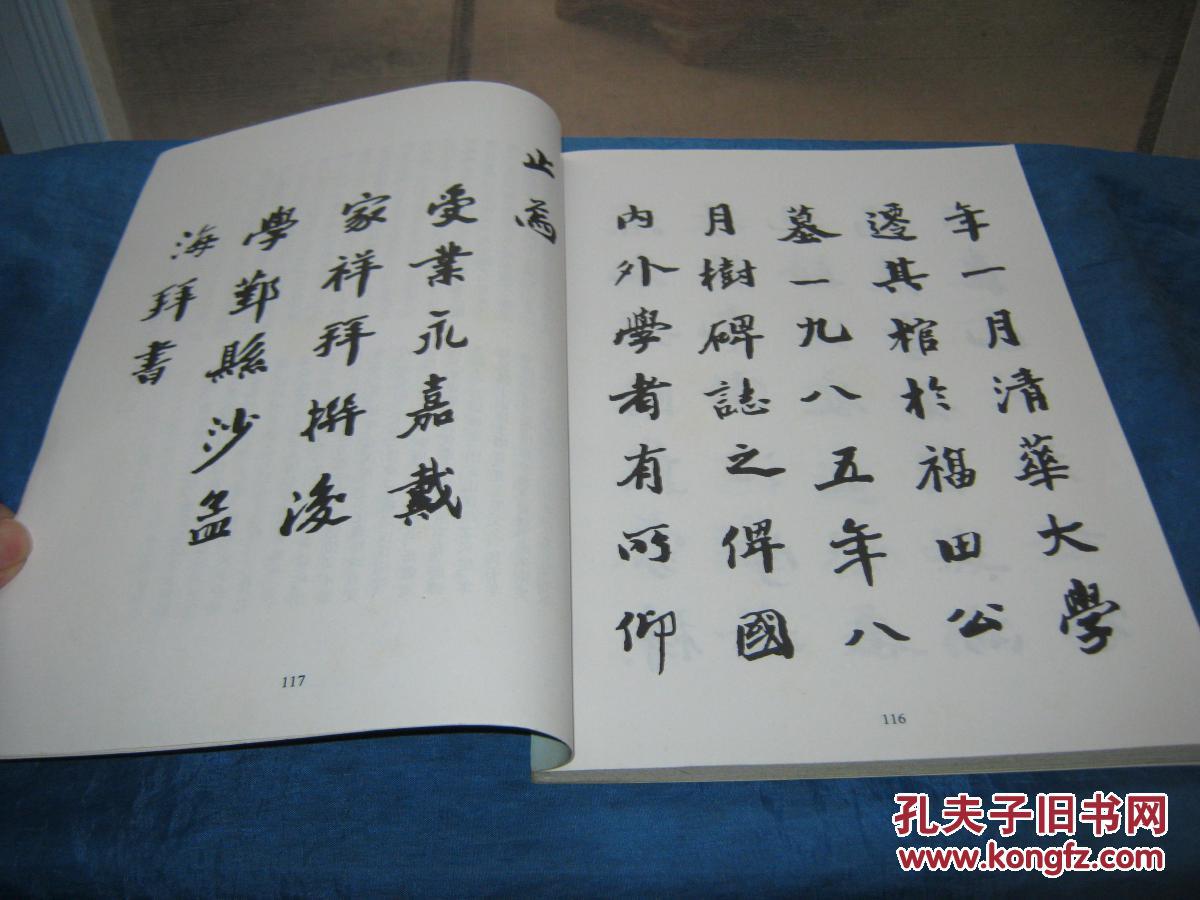 年一月清華大學
遷其棺於福田公
墓一九八五年八
月樹碑誌之俾國
內外學者有所仰
止焉
受業永嘉戴
家祥拜撰後
學鄞縣沙孟
海拜書
116
117
孔夫子旧书网
www.kongfz.com